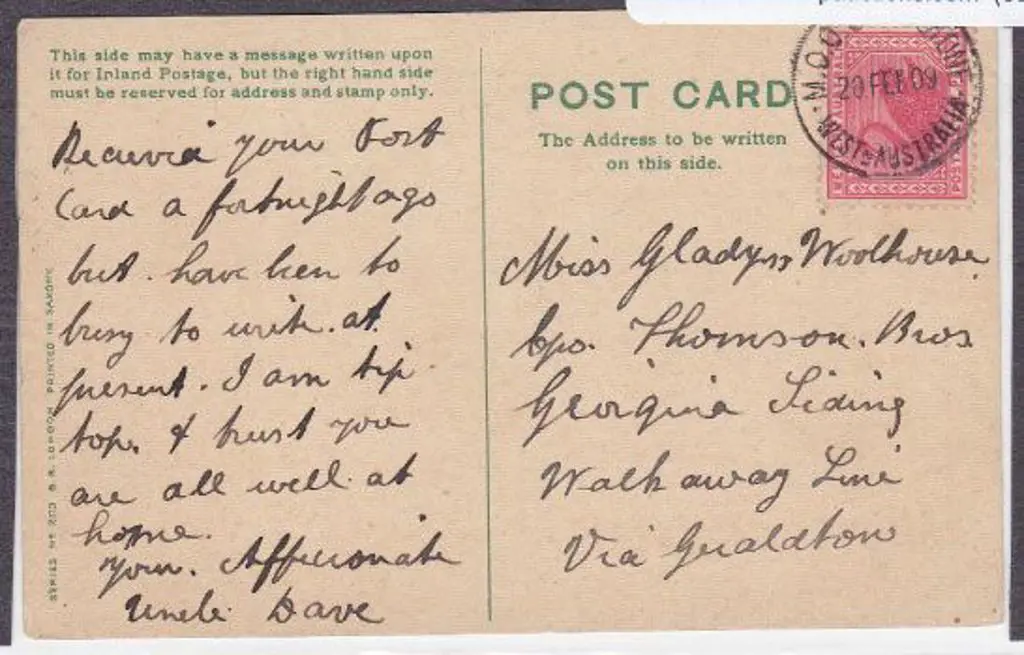 This side may have a message written upon
it for Inland Postage, but the right hand side
must be reserved for address and stamp only.
Recievia your Post
Card a fortnight ago
but have been to
busy to write. at.
present. I am tip
top. & trust you
are all well at
home.
your. Affecionate
Uncle Dave
POST CARD
The Address to be written
on this side.
20 FEB 09
WEST AUSTRALIA
POSTAGE
Miss Gladys Woolhouse
C/o. Thomson. Bros
Georgina Siding
Walkaway Line
Via Geraldton
PRINTED IN SAXONY